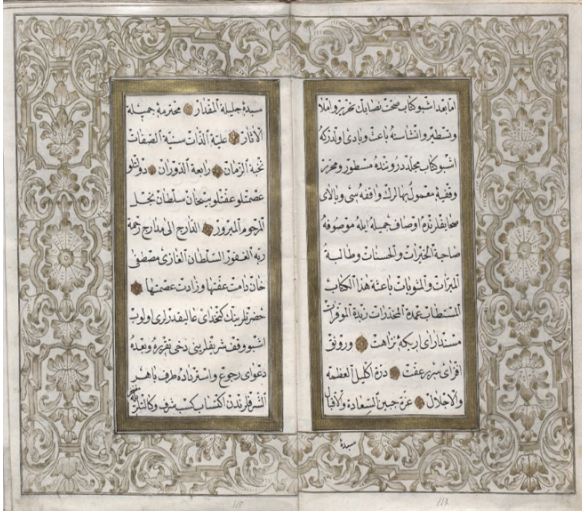 اما بعد اشبو كتاب صحت نصابك تحرير و املا
و تسطير و انشاسنه باعث و بادى اولدركه
اشبو كتاب مجلد درونده مسطور و محرر
وقفيۀ معمول بهالرك واقفه سى و بالاى
صحايفلرده اوصاف جميله ايله موصوفه
صاحبة الخيرات والحسنات وطالبة
المبرات والمثوبات باعثة هذا الكتاب
المستطاب عمدة المخدرات زبدة الموقرات
مسنداراى اريكۀ نزاهت و رونق
افزاى سرير عفت درة اكليل العظمة
والاجلال جبين السعادة والاقبال
سيدۀ
سيدۀ جليلة المقدار محترمۀ جميلة
الآثار علية الذات سنية الصفات
نخبة الزمان رابعة الدوران دولتلو
عصمتلو عفتلو سلطان
المرحوم المبرور العارج الى مدارج رحمة
ربه الغفور السلطان الغازى مصطفى
خان دامت عفتها وزادت عصمتها
حضرتلرينك كتخداى عاليقدرلرى اولوب
اشبو وقف شريفلرينى دخى تحريره و بعده
دعواى رجوع و استرداده طرف باهر
الشرفلرندن اكتساب شرف وكالتله